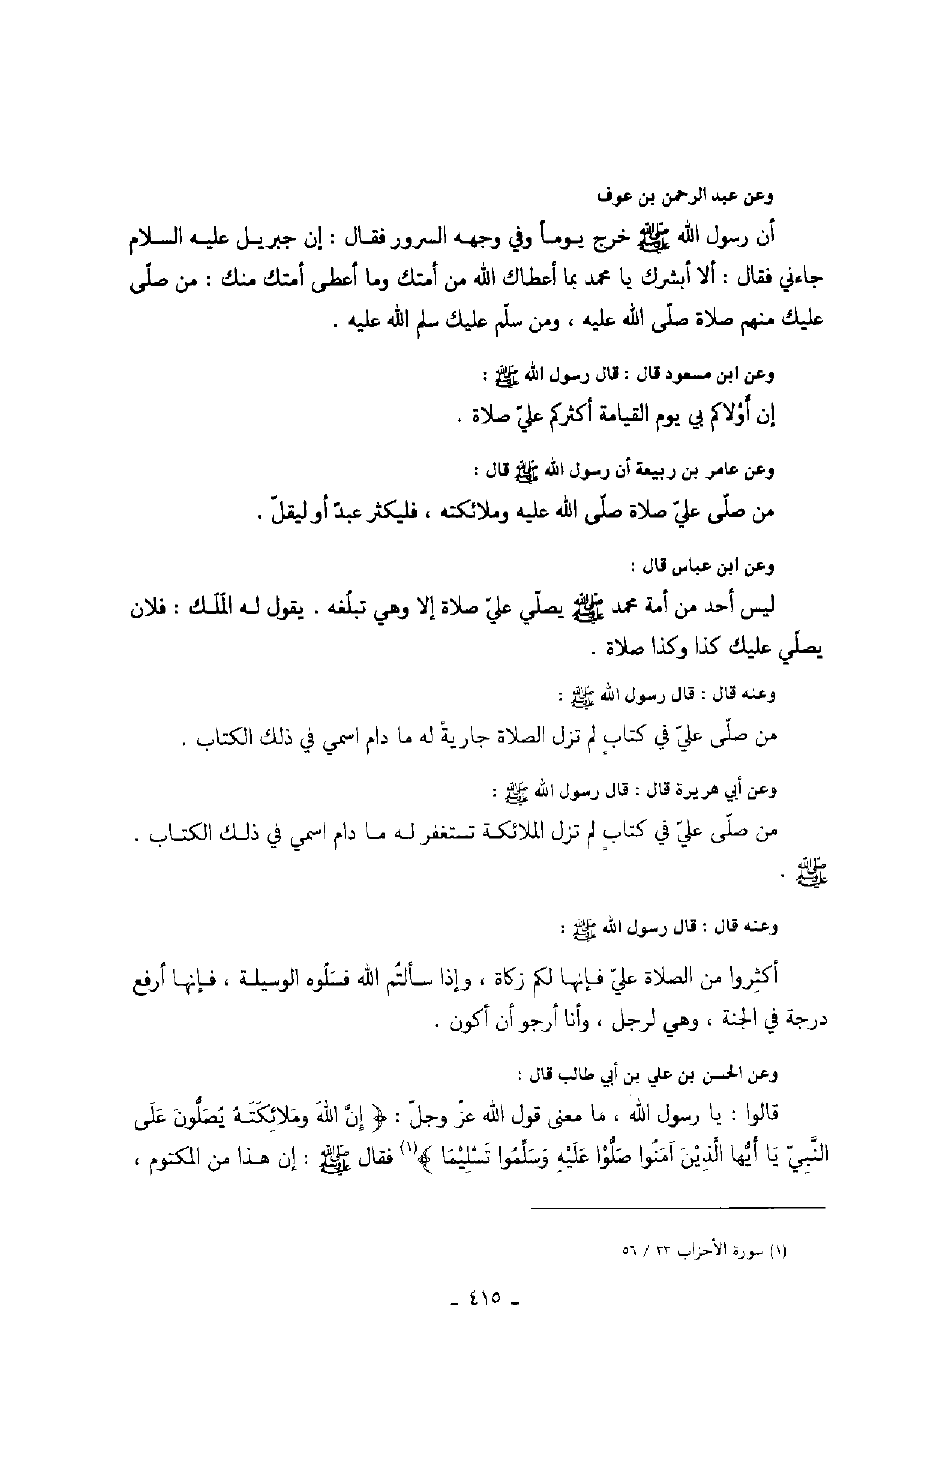 وعن عبد الرحمن بن عوف
أن رسول الله ﷺ خرج يوماً وفي وجهه السرور فقال : إن جبريل عليه السلام
جاءني فقال : ألا أبشرك يا محمد بما أعطاك الله من أمتك وما أعطى أمتك منك : من صلّى
عليك منهم صلاة صلّى الله عليه ، ومن سلّم عليك سلم الله عليه .
وعن ابن مسعود قال : قال رسول الله ﷺ :
إن أَوْلاكم بي يوم القيامة أكثركم عليّ صلاة .
وعن عامر بن ربيعة أن رسول الله ﷺ قال :
من صلّى عليّ صلاة صلّى الله عليه وملائكته ، فليكثر عبدٌ أو ليقلّ .
وعن ابن عباس قال :
ليس أحد من أمة محمد ﷺ يصلّي عليّ صلاة إلا وهي تبلّغه . يقول له المَلَك : فلان
يصلّي عليك كذا وكذا صلاة .
وعنه قال : قال رسول الله ﷺ :
من صلّى عليّ في كتابٍ لم تزل الصلاة جاريةً له ما دام اسمي في ذلك الكتاب .
وعن أبي هريرة قال : قال رسول الله ﷺ :
من صلّى عليّ في كتابٍ لم تزل الملائكة تستغفر له ما دام اسمي في ذلك الكتاب .
ﷺ .
وعنه قال : قال رسول الله ﷺ :
أكثِروا من الصلاة عليّ فإنها لكم زكاة ، وإذا سألتُم الله فسَلُوه الوسيلة ، فإنها أرفع
درجة في الجنة ، وهي لرجل ، وأنا أرجو أن أكون .
وعن الحسن بن علي بن أبي طالب قال :
قالوا : يا رسول الله ، ما معنى قول الله عزّ وجلّ : ﴿ إِنَّ اللهَ وَمَلائِكَتَهُ يُصَلُّونَ عَلَى
النَّبِيّ يَا أَيُّها الَّذِيْنَ آمَنُوا صَلُّوْا عَلَيْهِ وَسَلِّمُوا تَسْلِيْمَا ﴾(١) فقال ﷺ : إن هذا من المكتوم ،
(١) سورة الأحزاب ٣٣ / ٥٦
- ٤١٥ -